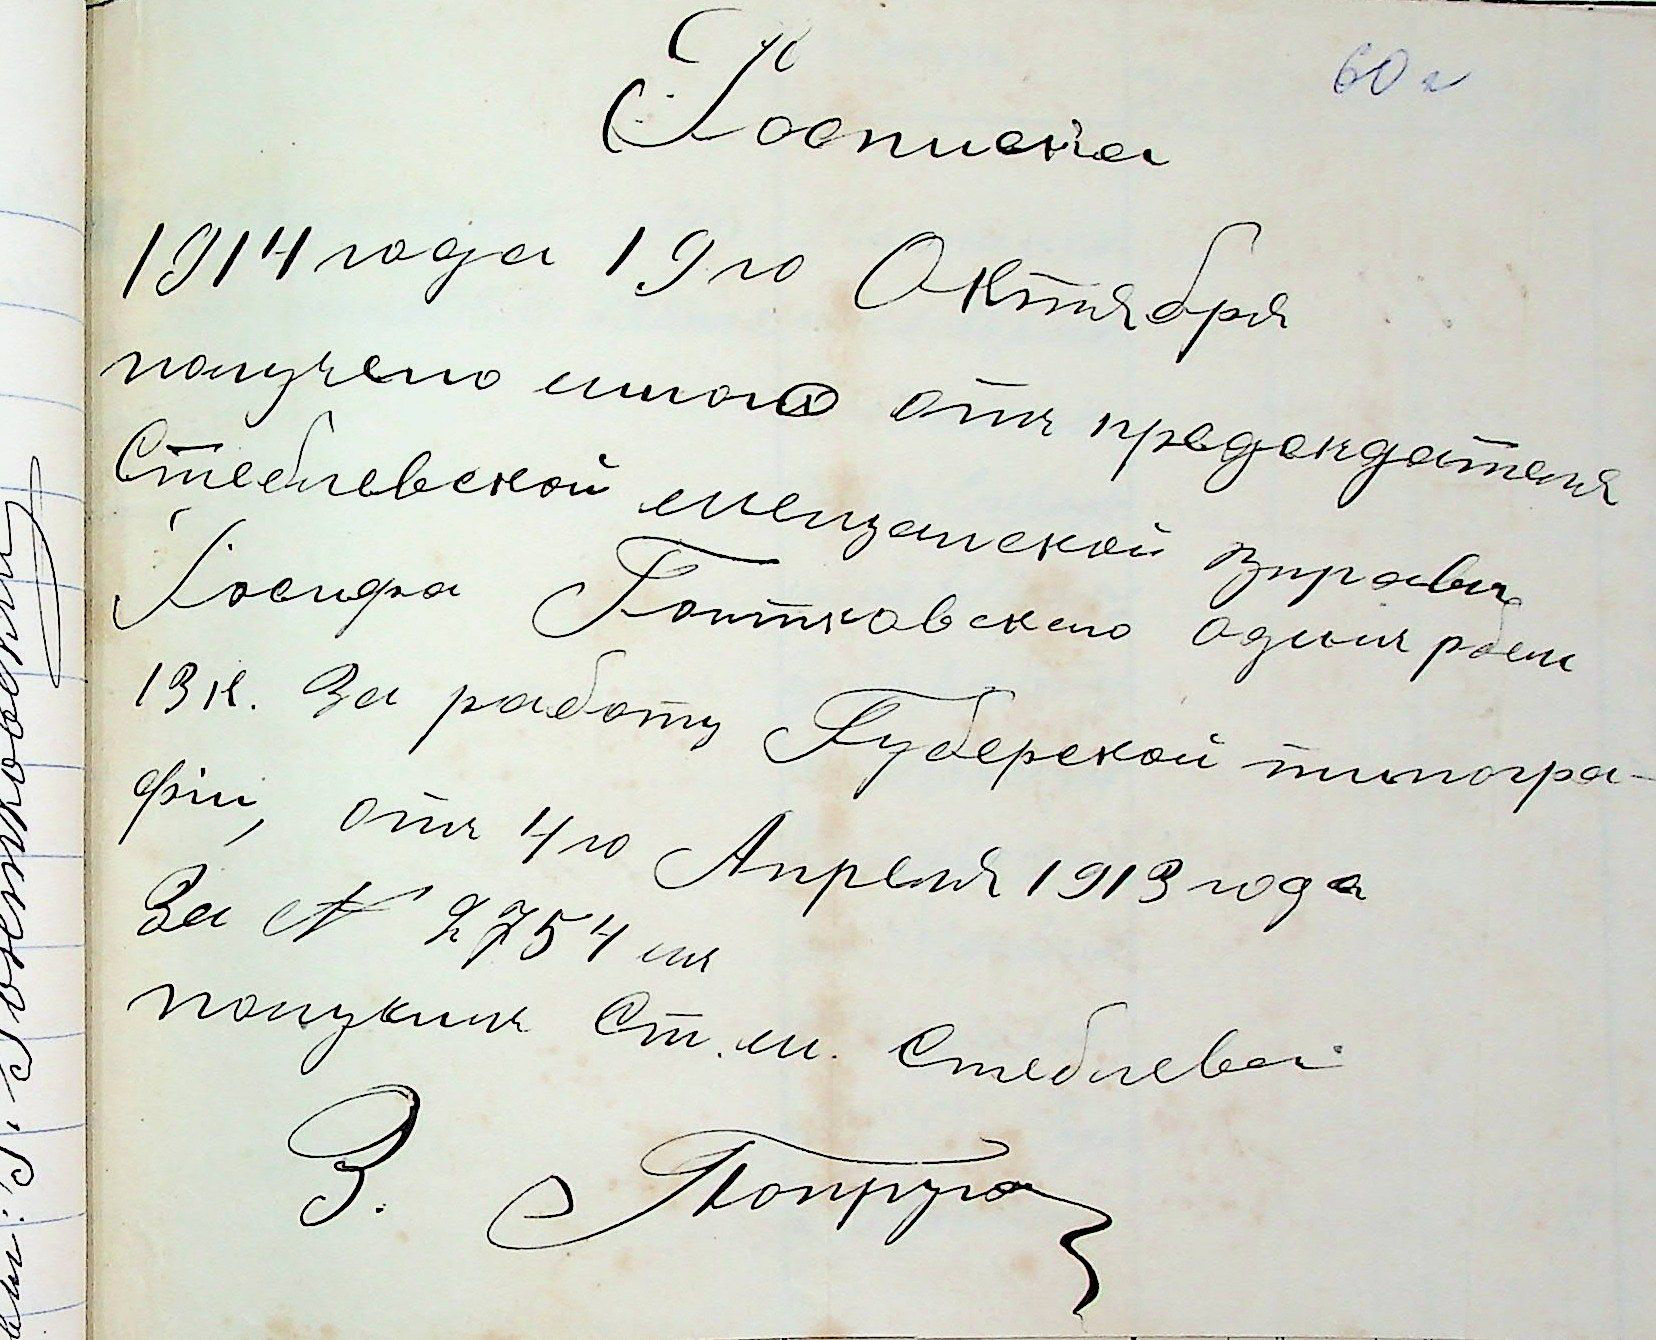 60
Росписка
1914 года 19го Октября
получено мною отъ председателя
Стеблевской мещанской управы
Іосифа Гонтковского один рбль
13 к. За работу Губерской типогра-
фіи, отъ 4го Апреля 1913 года
За № 2754 мъ
получилъ Ст. м. Стеблева
З. Попруга